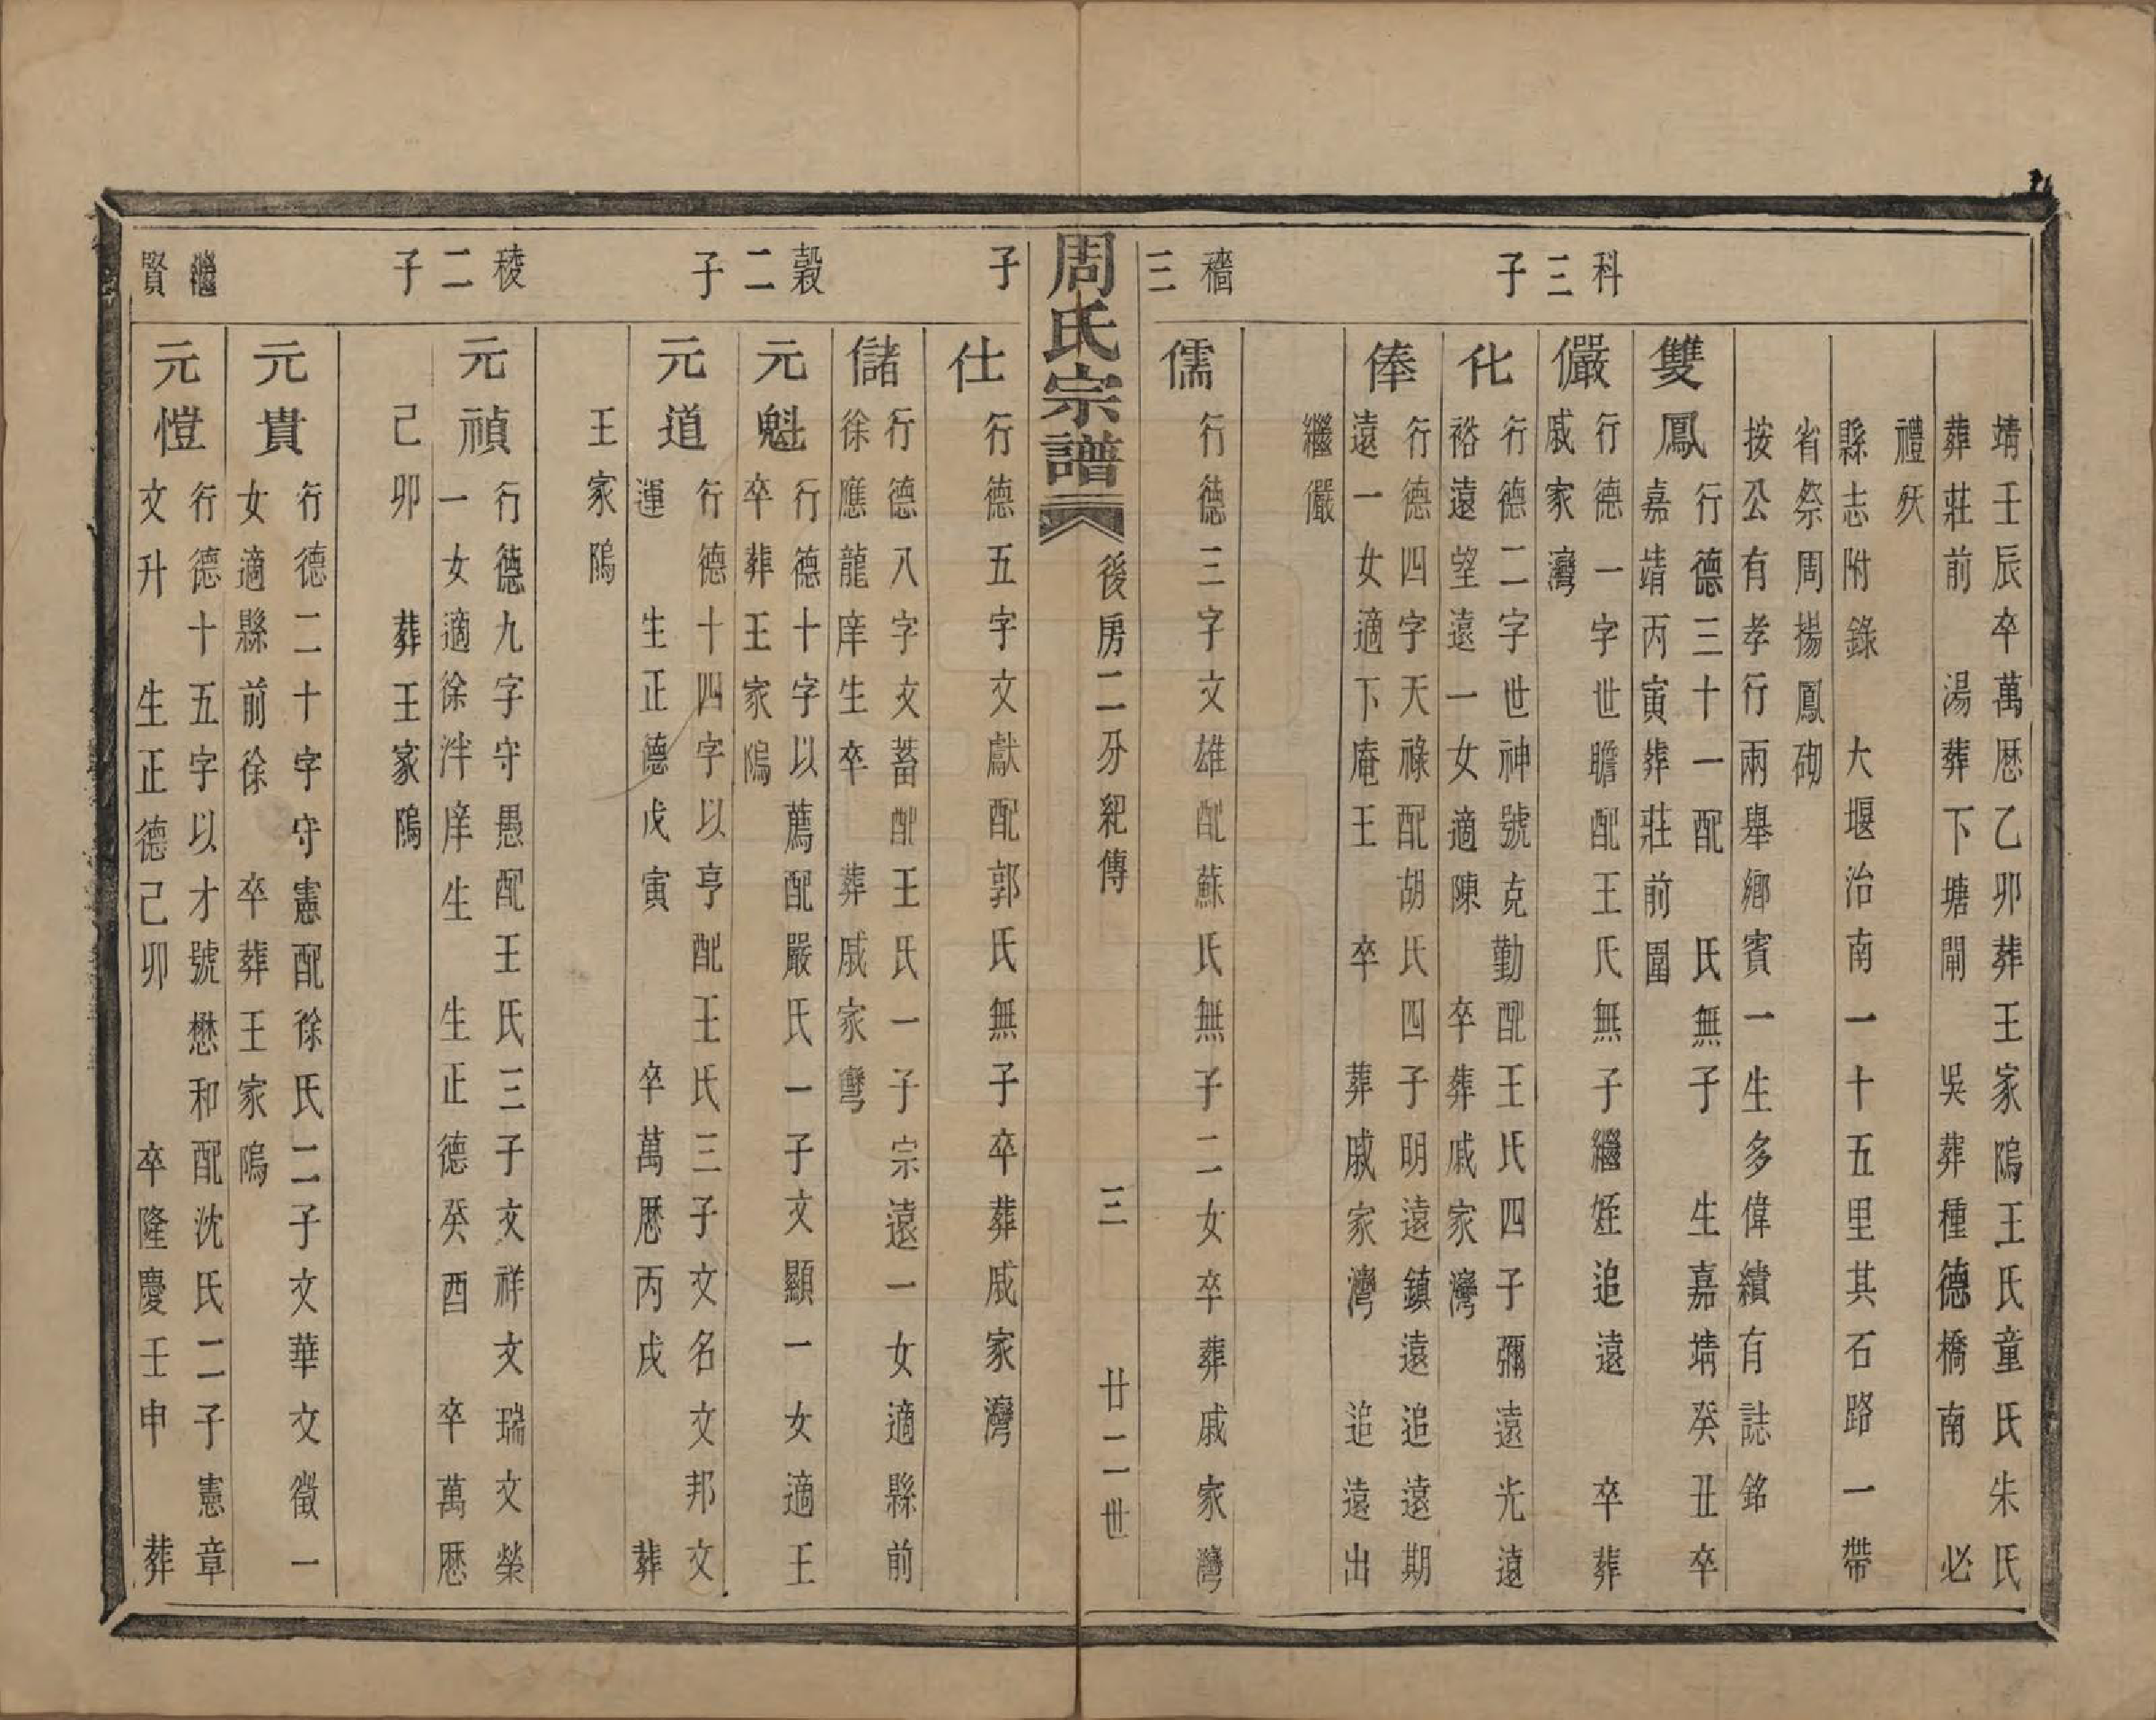 靖壬辰卒萬歷乙卯葬王家塢王氏童氏朱氏
葬莊前　湯葬下塘閘　吳葬種德橋南　必
禮殀
縣志附錄　大堰治南一十五里其石路一帶
省祭周揚鳳砌
按公有孝行兩舉鄉賓一生多偉績有誌銘
雙鳳
行德三十一配　氏無子　生嘉靖癸丑卒
嘉靖丙寅葬莊前圍
科三子
儼
行德一字世瞻配王氏無子繼姪追遠　卒葬
戚家灣
化
行德二字世神號克勤配王氏四子彌遠光遠
裕遠望遠一女適陳　卒葬戚家灣
俸
行德四字天祿配胡氏四子明遠鎮遠追遠期
遠一女適下庵王　卒　葬戚家灣　追遠出
繼儼
穡三
儒
行德三字文雄配蘇氏無子二女卒葬戚家灣
周氏宗譜
後房二分紀傳
三
廿二世
子
仕
行德五字文獻配郭氏無子卒葬戚家灣
儲
行德八字文蓄配王氏一子宗遠一女適縣前
徐應龍庠生卒　葬戚家灣
穀二子
元魁
行德十字以薦配嚴氏一子文顯一女適王
卒葬王家塢
元道
行德十四字以亨配王氏三子文名文邦文
運　生正德戊寅　卒萬歷丙戌　葬
王家塢
稜二子
元禎
行德九字守愚配王氏三子文祥文瑞文榮
一女適徐泮庠生　生正德癸酉　卒萬歷
己卯　葬王家塢
元貴
行德二十字守憲配徐氏二子文華文徵一
女適縣前徐　卒葬王家塢
繼賢
元愷
行德十五字以才號懋和配沈氏二子憲章
文升　生正德己卯　卒隆慶壬申　葬